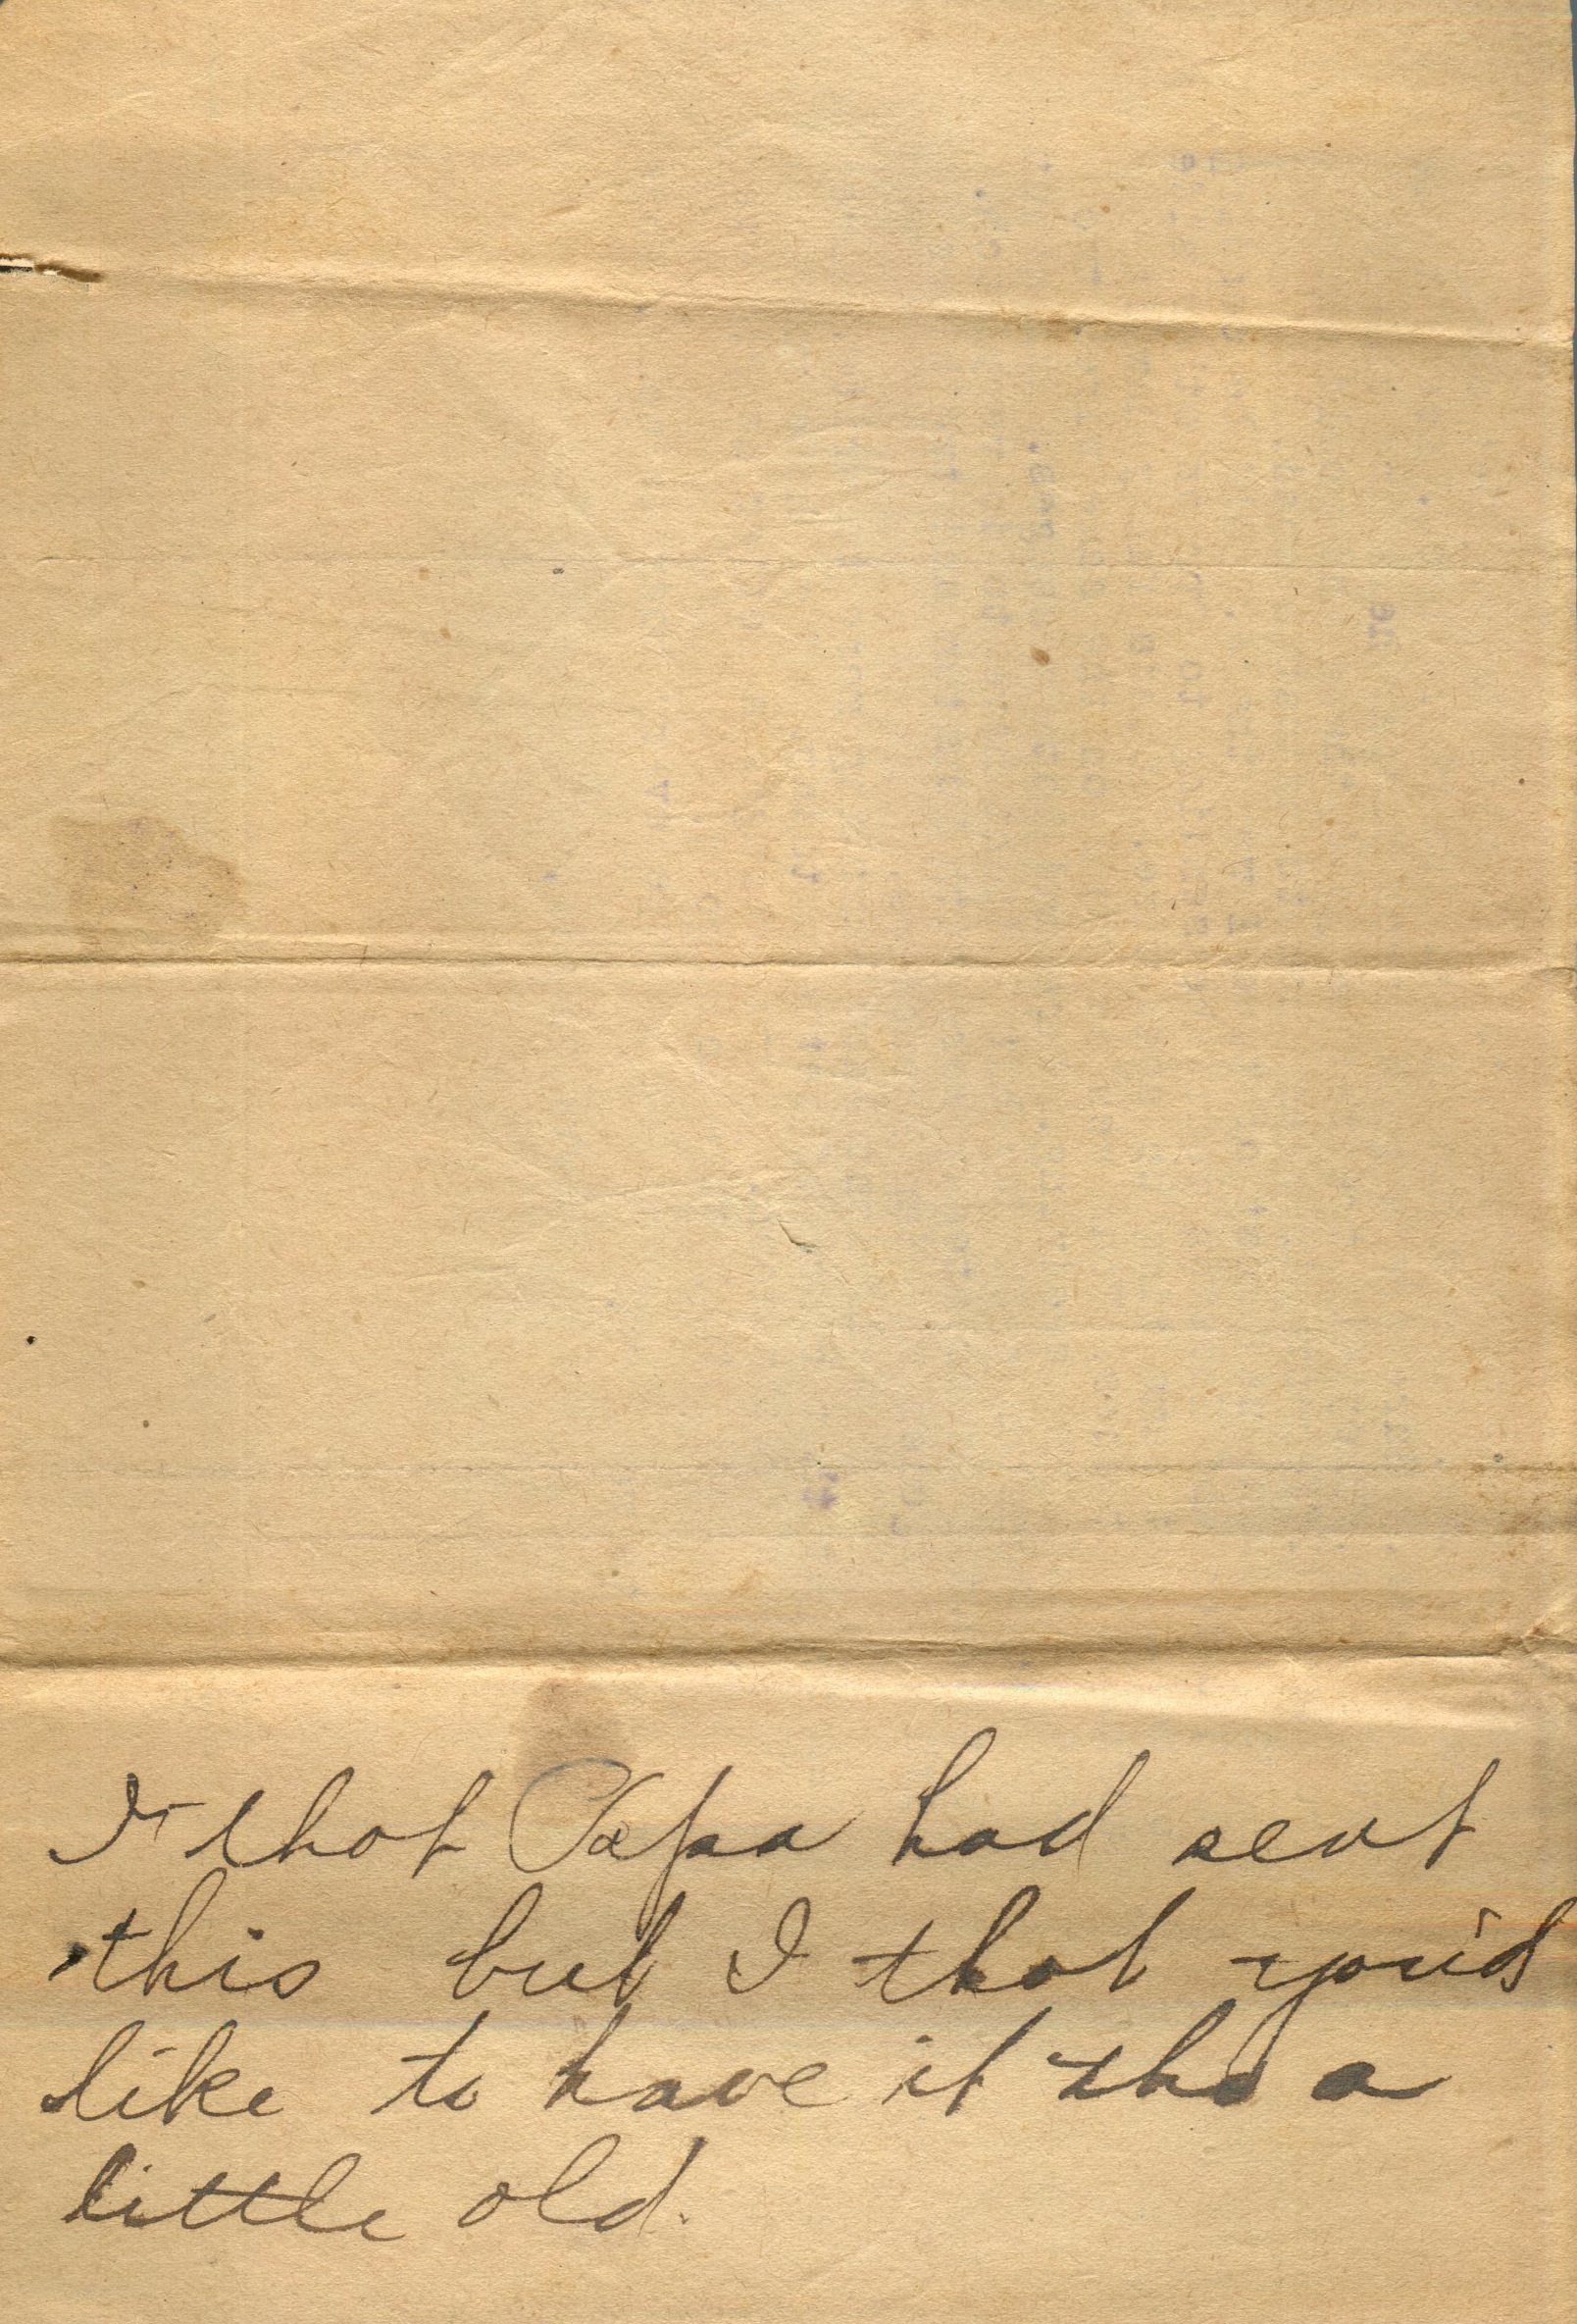 I thot Papa had sent
this but I thot you'd
like to have it tho a
little old.